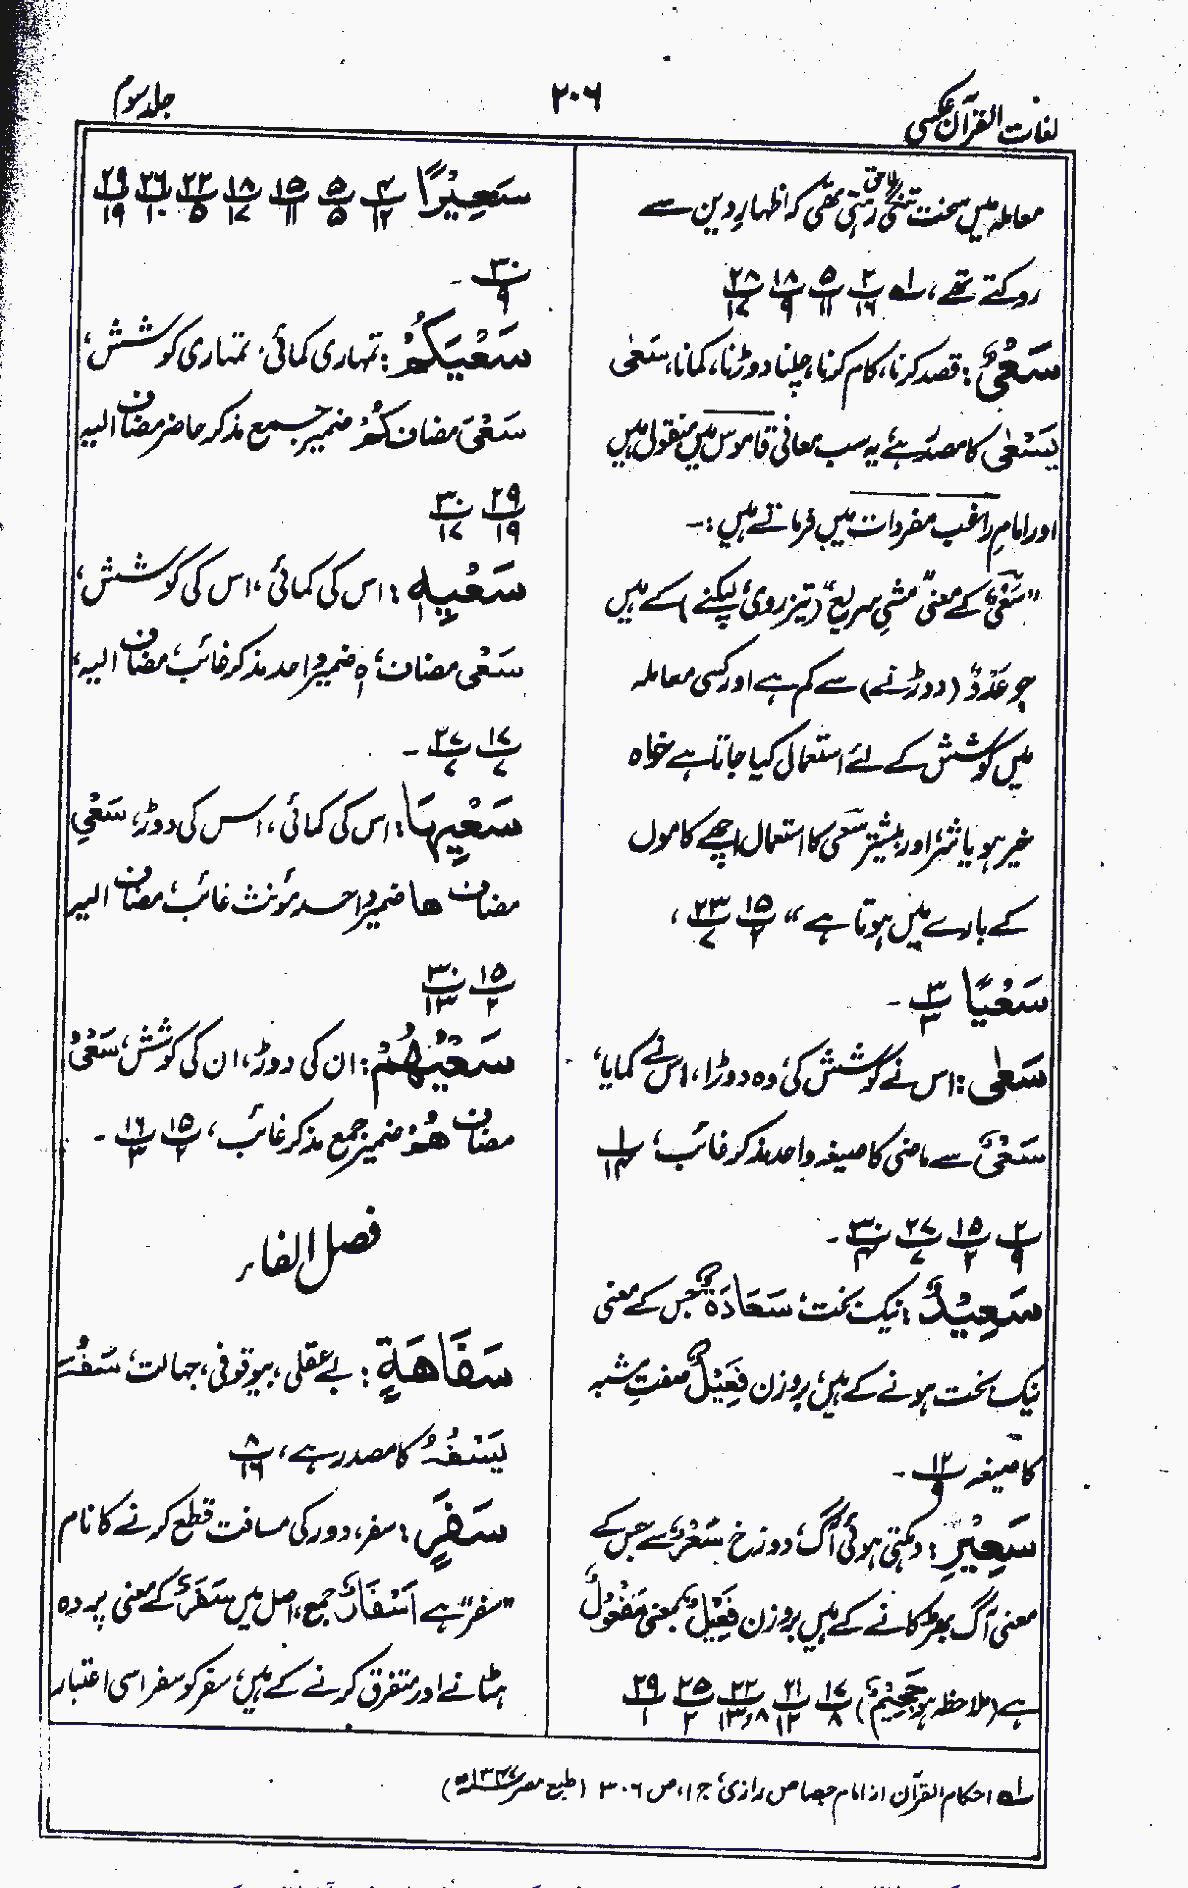 لغات القرآن عکسی
۲۰۶
جلد سوم
معاملہ میں سخت تنگی لاحق رہتی تھی کہ اظہارِ دین سے
روکتے تھے، لہ ۲/۱۶ ۵/۱۱ ۱۸/۹ ۲۸/۱۷
سَعْیٌ : قصد کرنا، کام کرنا، چلنا دوڑنا، کمانا، سَعٰی
یَسْعٰی کا مصدر ہے یہ سب معانی قاموس میں منقول ہیں
اور امام راغب مفردات میں فرماتے ہیں :-
"سَعْیٌ کے معنی مَشْیِ سریع (تیز روی، لپکنے) کے ہیں
جو عَدْوٌ (دوڑنے) سے کم ہے اور کسی معاملہ
میں کوشش کے لئے استعمال کیا جاتا ہے خواہ
خیر ہو یا شر، اور بیشتر سَعی کا استعمال اچھے کاموں
کے بارے میں ہوتا ہے " ۱۵/۲ ۲۳/۷ ،
سَعْیًا ۳/۳ -
سَعٰی : اس نے کوشش کی، وہ دوڑا، اس نے کمایا،
سَعْیٌ سے ماضی کا صیغہ واحد مذکر غائب، ۱/۱۴
۲/۹ ۱۵/۲ ۲۷/۷ ۳۰/۴ -
سَعِیْدٌ : نیک بخت، سَعَادَۃٌ جس کے معنی
نیک بخت ہونے کے ہیں، بروزن فَعِیْلٌ صفت مشبہ
کا صیغہ ۱۲/۹ -
سَعِیْرِ : دہکتی ہوئی آگ، دوزخ سَعْرٌ سے جس کے
معنی آگ بھڑکانے کے ہیں بروزن فَعِیْلٌ بمعنی مَفْعُوْلٌ
ہے (ملاحظہ ہو جَحِیْمٌ) ۱۷/۸ ۲۱/۱۲ ۲۲/۱۳،۸ ۲۵/۲ ۲۹/۱
سَعِیْرًا ۴/۱۲ ۵/۵ ۱۵/۱۱ ۱۸/۱۷ ۲۲/۵ ۲۶/۱۰ ۲۹/۱۹
۳۰/۹ -
سَعْیَکُمْ : تمہاری کمائی، تمہاری کوشش،
سَعْیَ مضاف کُمْ ضمیر جمع مذکر حاضر مضاف الیہ
۲۹/۱۹ ۳۰/۱۷
سَعْیِهٖ : اس کی کمائی، اس کی کوشش،
سَعْی مضاف، ہٖ ضمیر واحد مذکر غائب، مضاف الیہ،
۱۷/۷ ۲۷/۷ -
سَعْیِهَا : اس کی کمائی، اس کی دوڑ، سَعْیِ
مضاف ھا ضمیر واحد مؤنث غائب، مضاف الیہ
۱۵/۲ ۳۰/۱۳
سَعْیُهُمْ : ان کی دوڑ، ان کی کوشش، سَعْیُ
مضاف ھُمْ ضمیر جمع مذکر غائب، ۱۵/۲ ۱۶/۳ -
فصل الفاء
سَفَاهَةٍ : بے عقلی، بیوقوفی، جہالت، سَفُہَ
یَسْفُہُ کا مصدر ہے، ۸/۱۶
سَفَرٍ : سفر، دور کی مسافت قطع کرنے کا نام
"سفر" ہے اَسْفَارٌ جمع، اصل میں سَفَرٌ کے معنی پردہ
ہٹانے اور متفرق کرنے کے ہیں، سفر کو سفر اسی اعتبار
لہ احکام القرآن از امام جصاص رازی، ج ۱، ص ۳۰۶ (طبع مصر ۱۳۴۷ھ)